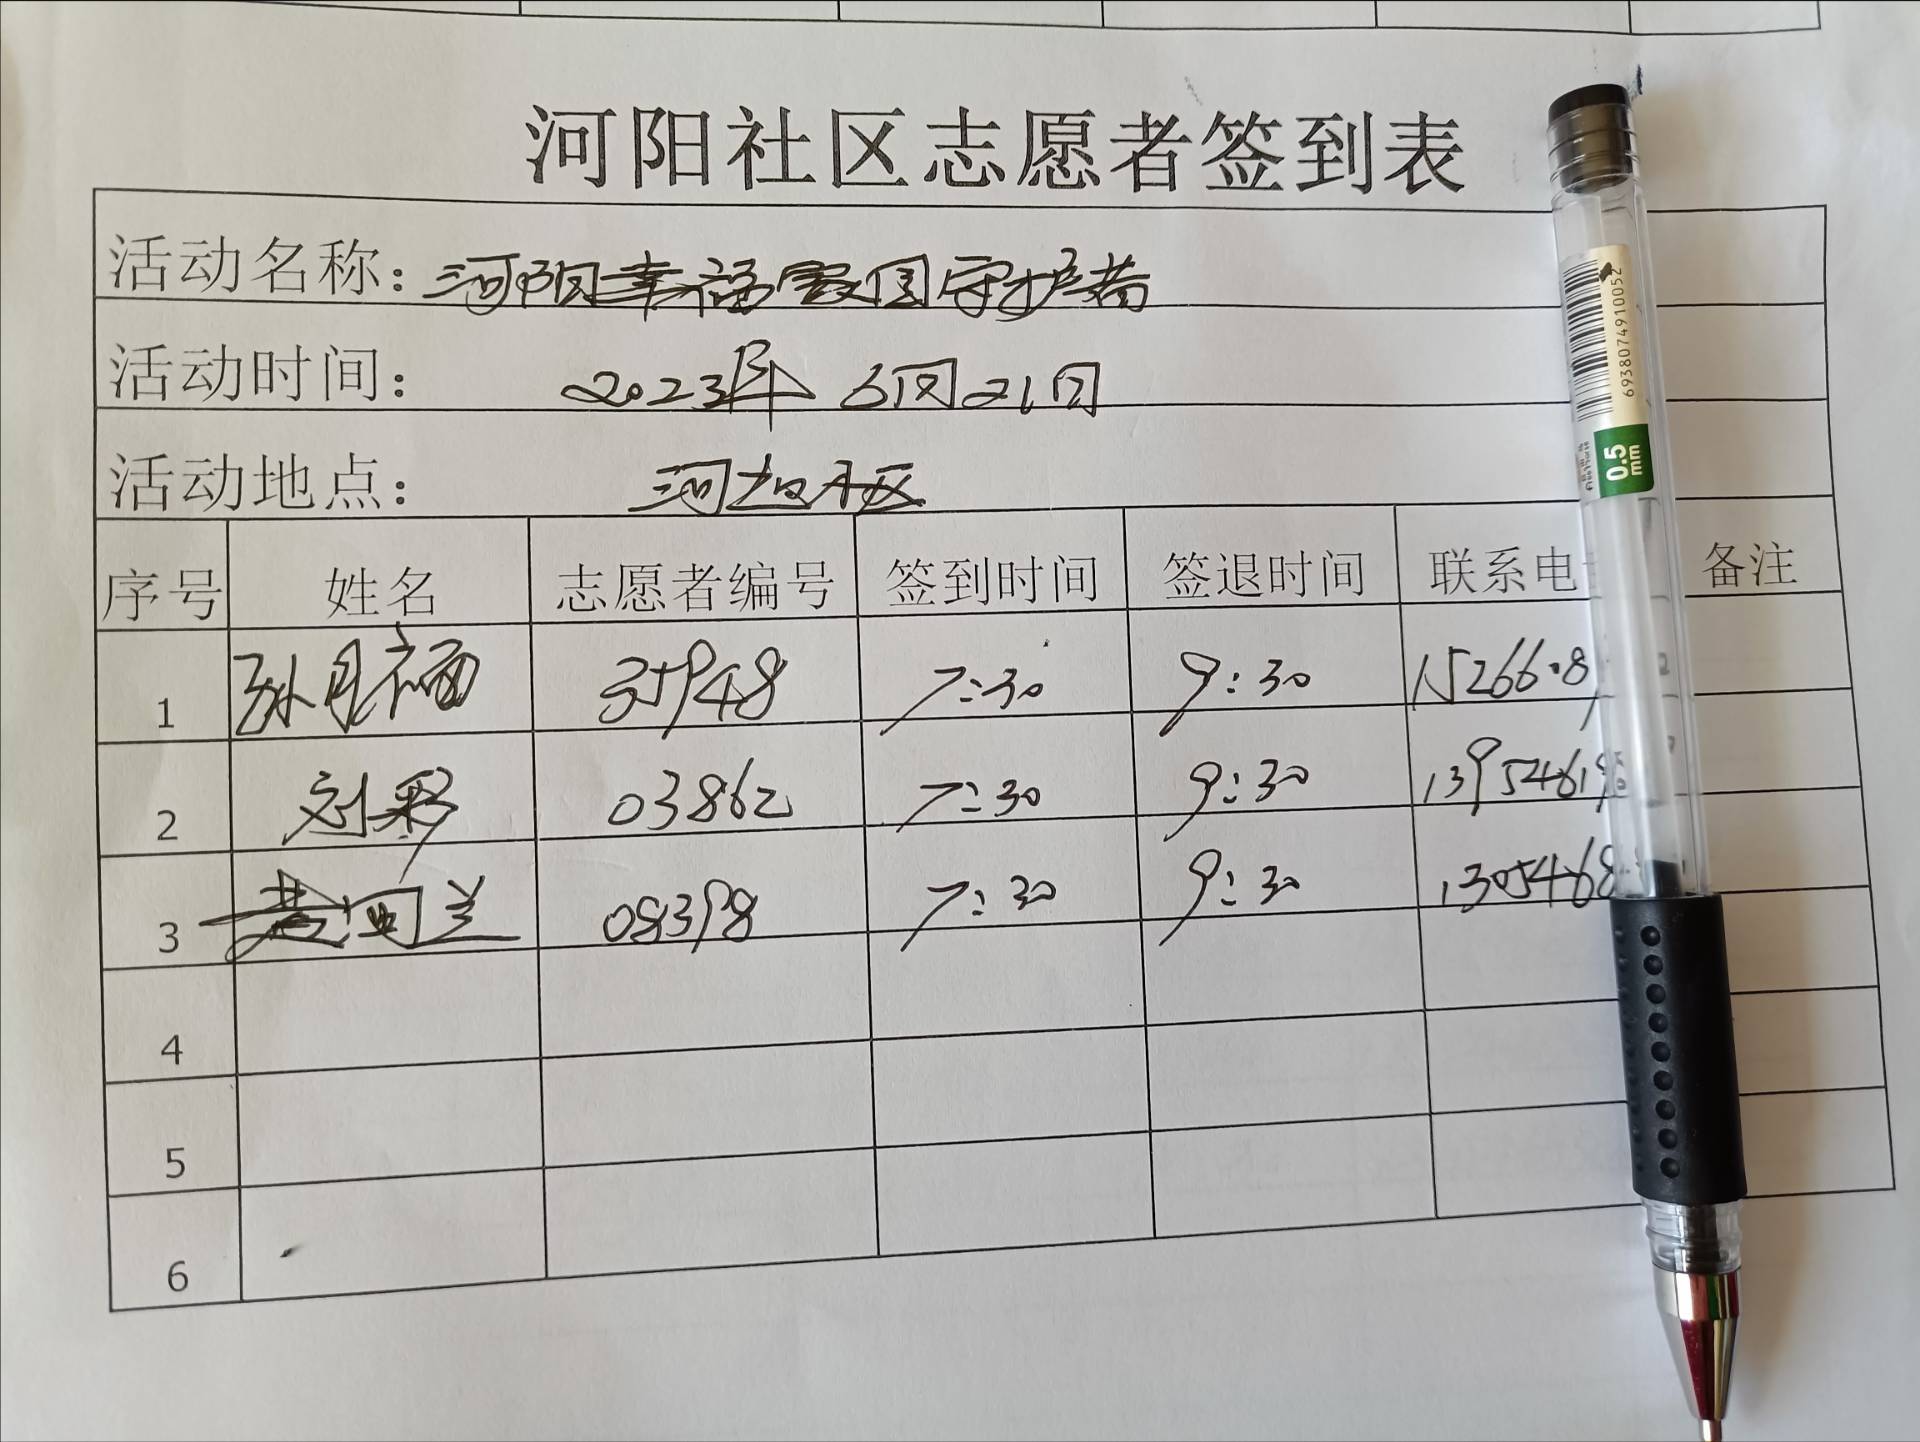 河阳社区志愿者签到表
活动名称：河阳幸福家园守护者
活动时间： 2023年 6月21日
活动地点： 河阳社区
序号 姓名 志愿者编号 签到时间 签退时间 联系电 备注
1 35948 7:30 9:30 1526608
2 刘彩 03862 7:30 9:30 1395461
3 黄河兰 08398 7:30 9:30 1305468
4
5
6
6938074910052
0.5
mm